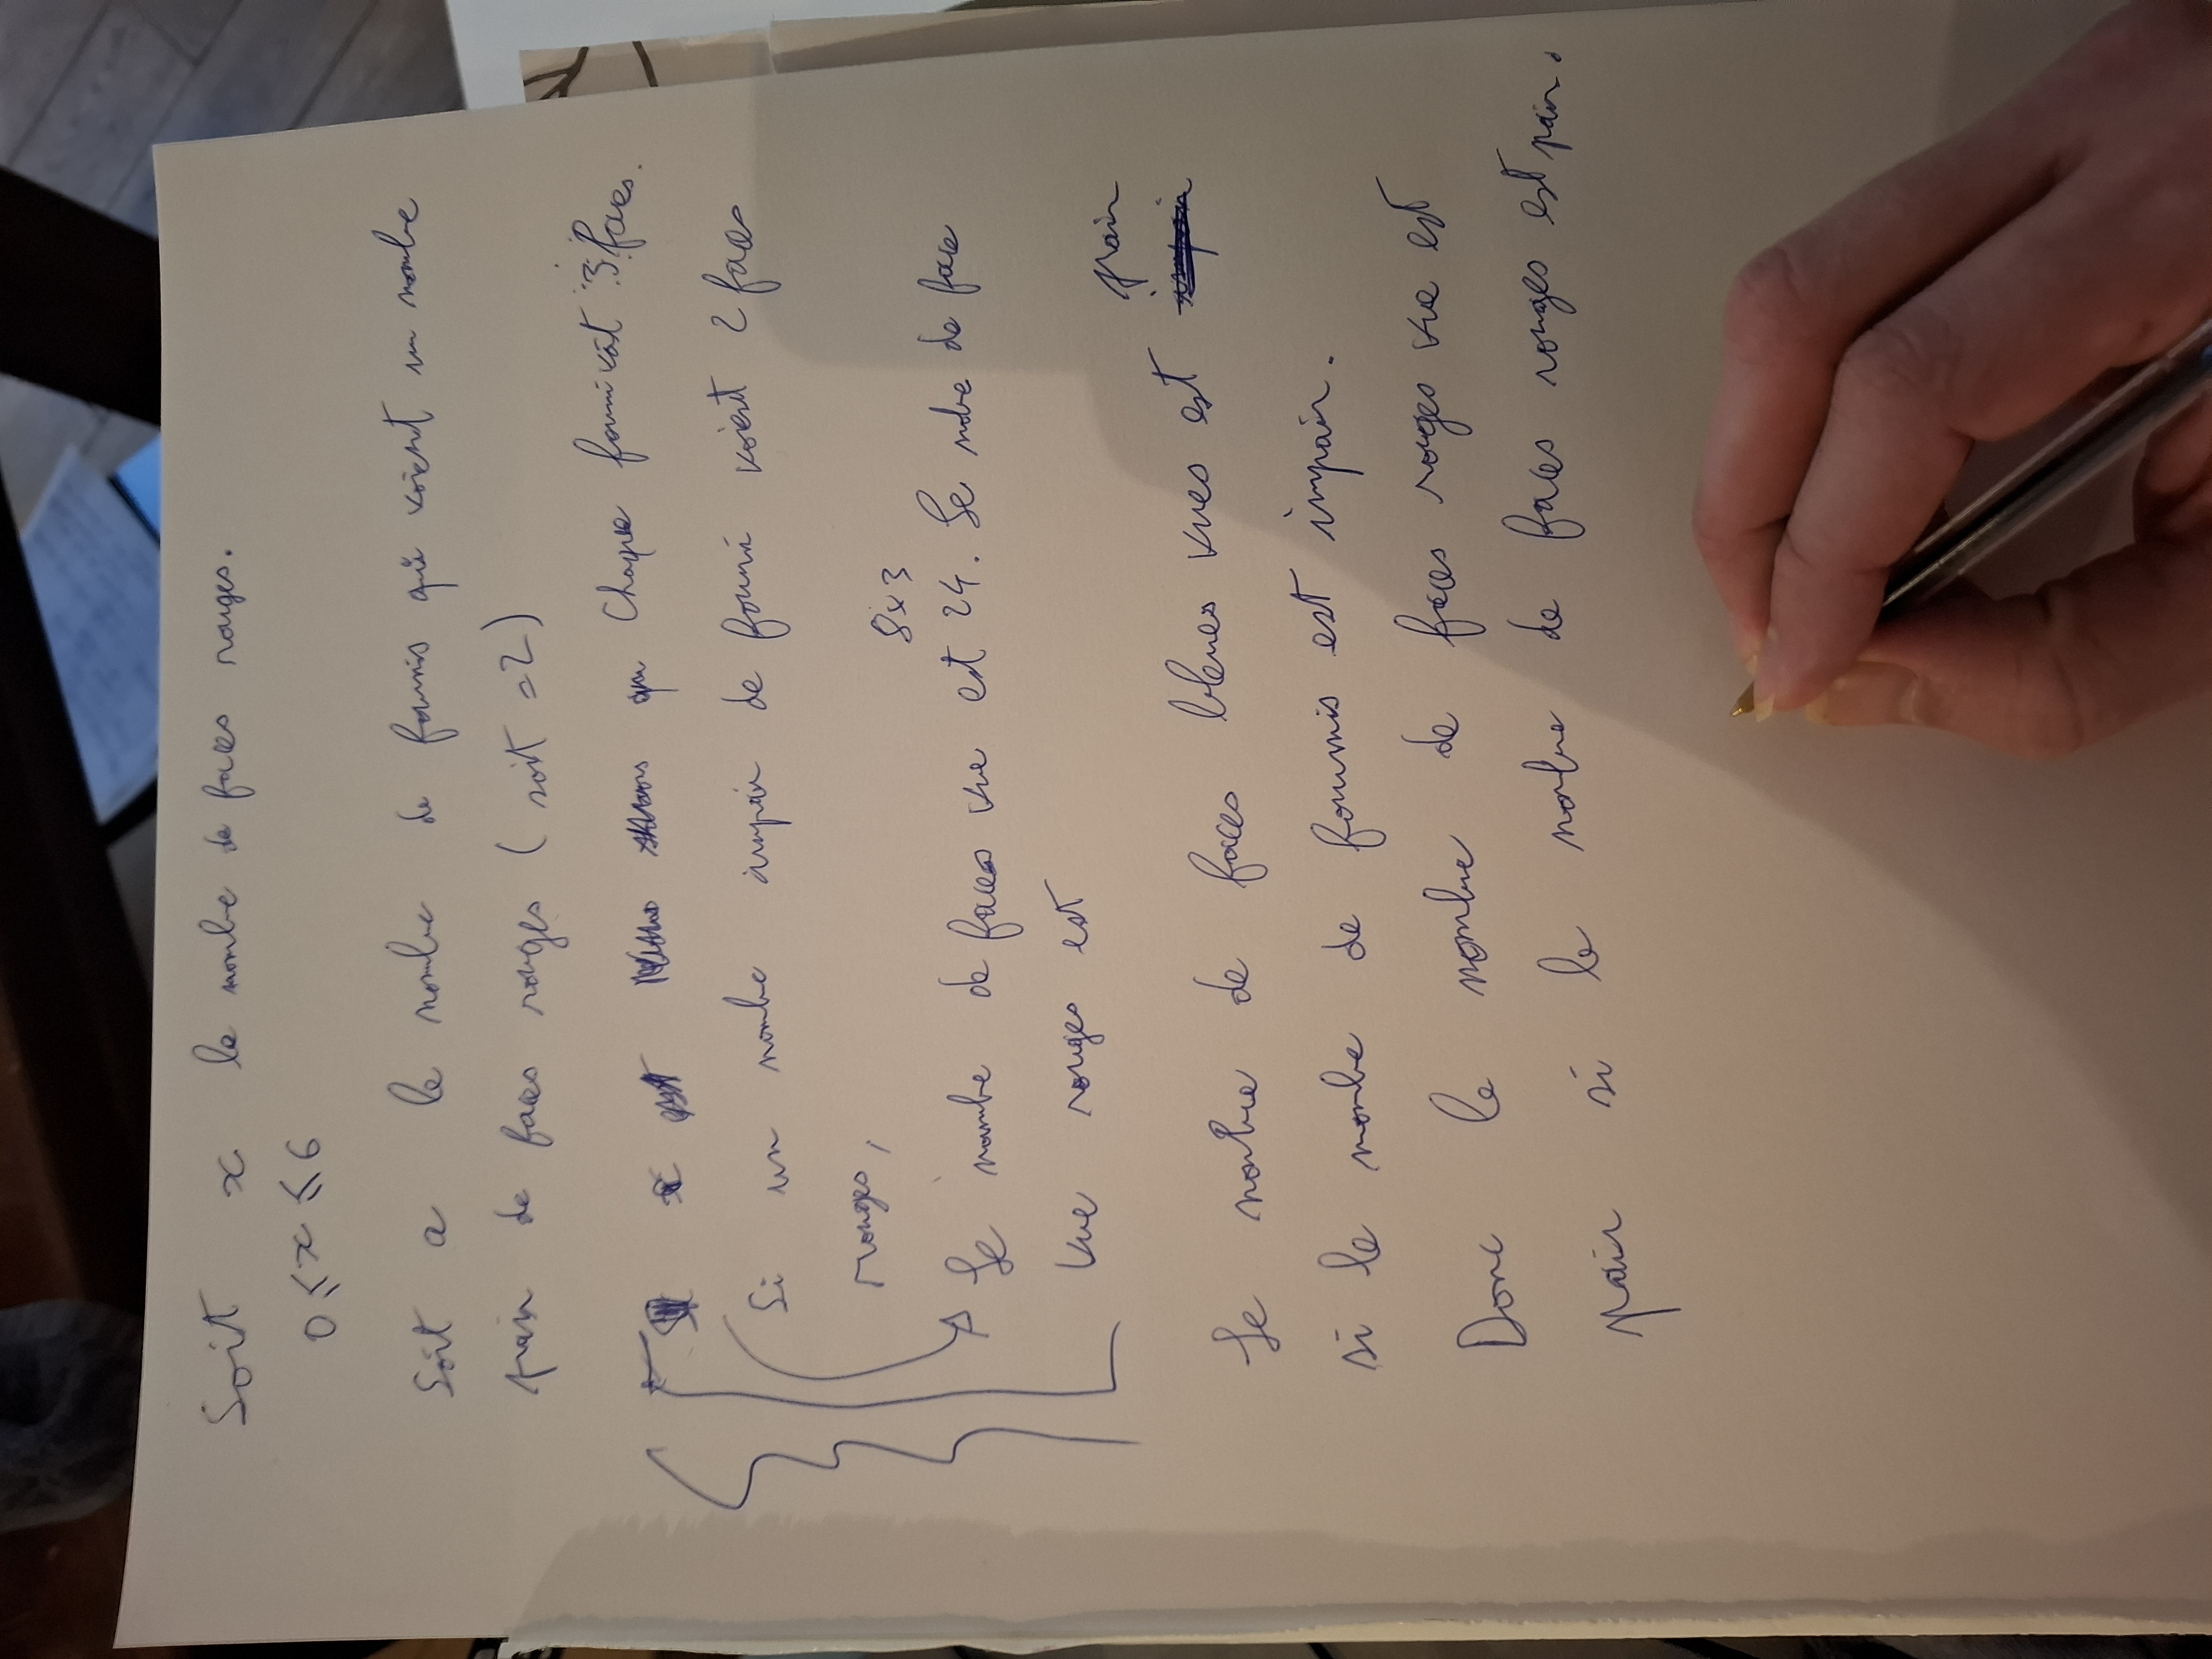 Soit x le nombre de faces rouges.
0 ⩽ x ⩽ 6
Soit a le nombre de fourmis qui voient un nombre
pair de faces rouges (soit = 2)
Chaque fourmi voit 3 faces.
Si un nombre impair de fourmi voient 2 faces
rouges,
8x3
Le nombre de faces vue est 24. Le nobre de face
vue rouges est
pair
Le nombre de faces bleues vues est impair
si le nombre de fourmis est impair.
Donc le nombre de faces rouges vue est
pair si le nombre de faces rouges est pair.